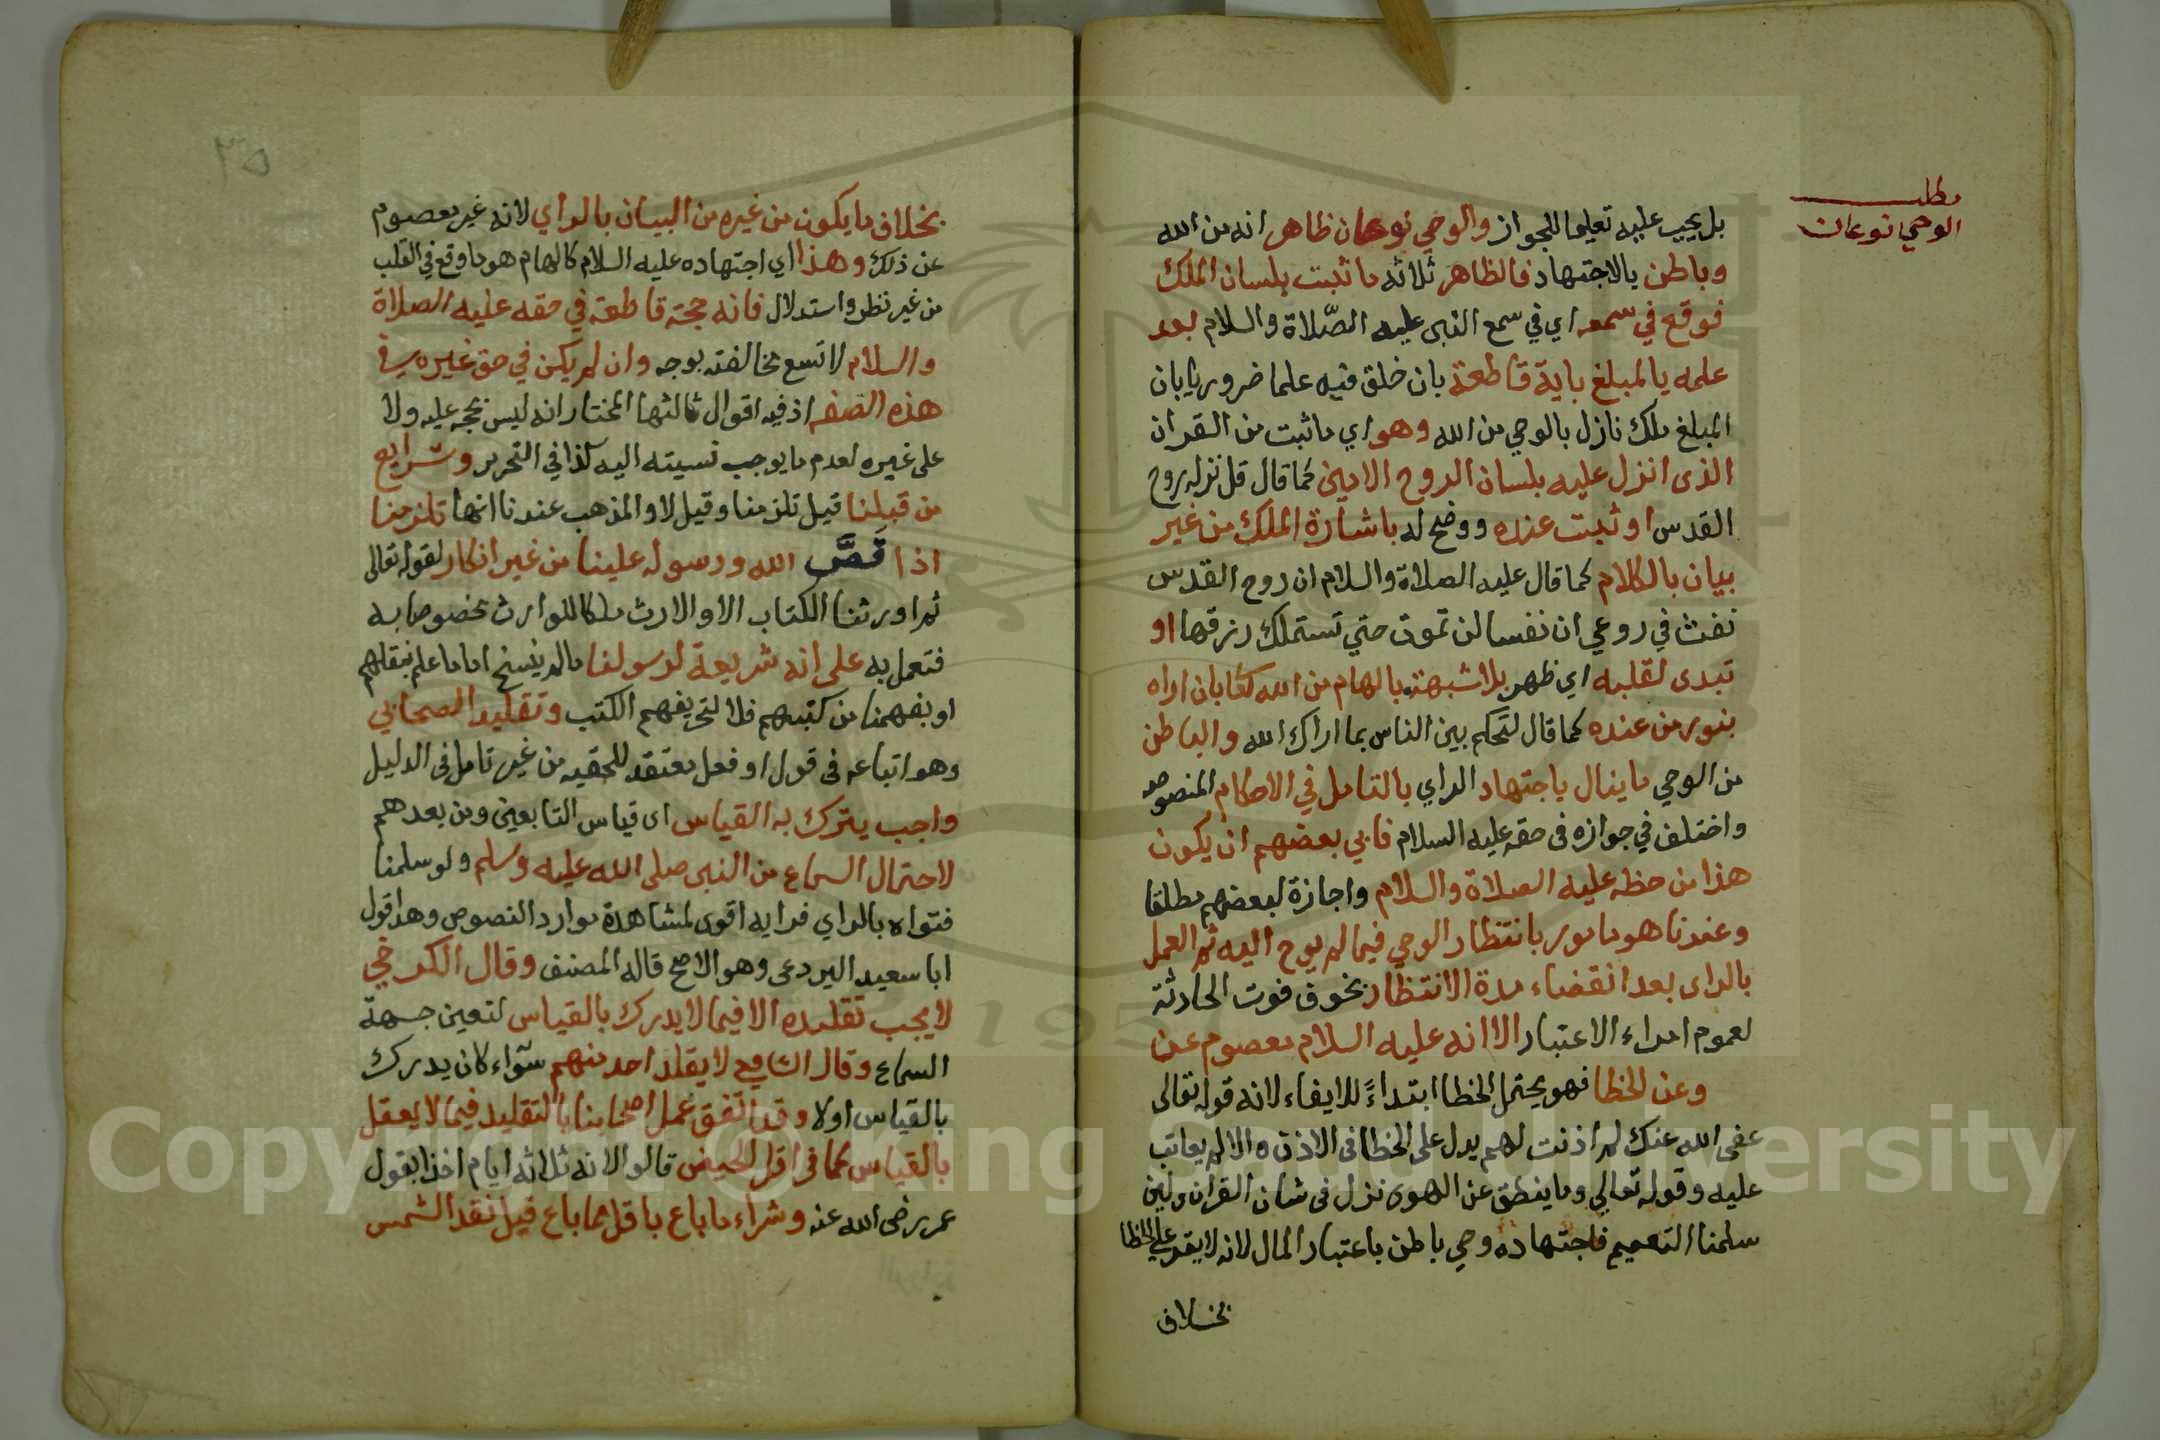 مطلب
الوحي نوعان
بل يجب عليه تعليما للجواز والوحي نوعان ظاهر انه من الله
وباطن بالاجتهاد فالظاهر ثلاثه ما ثبت بلسان الملك
فوقع في سمعه اي في سمع النبى عليه الصّلاة والسلام بعد
علمه بالمبلغ باية قاطعة بان خلق فيه علما ضروريا بان
المبلغ ملك نازل بالوحي من الله وهو اي ما ثبت من القران
الذى انزل عليه بلسان الروح الامين كما قال قل نزله روح
القدس او ثبت عنده ووضح له باشارة الملك من غير
بيان بالكلام كما قال عليه الصلاة والسلام ان روح القدس
نفث في روعي ان نفسا لن تموت حتي تستملك رزقها او
تبدى لقلبه اي ظهر بلا شبهة بالهام من الله تعا بان اراه
بنور من عنده كما قال لتحكم بين الناس بما اراك الله والباطن
من الوحي ما ينال باجتهاد الراي بالتامل في الاحكام المنصوصه
واختلف في جوازه فى حقه عليه السلام فابي بعضهم ان يكون
هذا من حظه عليه الصلاة والسلام واجازة بعضهم مطلقا
وعندنا هو مامور بانتظار الوحي فيما لم يوح اليه ثم العمل
بالراى بعد انقضاء مدة الانتظار بخوف فوت الحادثة
لعموم امراء الاعتبار الا انه عليه السلام معصوم عن
وعن الخطا فهو يحتمل الخطا ابتداءً للايفاء لانه قوله تعالى
عفى الله عنك لم اذنت لهم يدل على الخطا فى الاذن ه والا لم يعاتب
عليه وقوله تعالي وما ينطق عن الهوى نزل فى شان القران ولئن
سلمنا التعميم فاجتهاده وحي باطن باعتبار المال لانه لا يقر على الخطا
بخلاف
٣٥
بخلاف ما يكون من غيره من البيان بالراي لانه غير معصوم
عن ذلك وهذا اي اجتهاده عليه السلام كالهام هو ما وقع في القلب
من غير نظر واستدلال فانه حجة قاطعة في حقه عليه الصلاة
والسلام لا تسع مخالفته بوجه وان لم يكن في حق غيره في
هذه الصفه اذ فيه اقوال ثالثها المختار انه ليس بحجه عليه ولا
على غيره لعدم ما يوجب نسبته اليه كذا في التحرير وشرايع
من قبلنا قيل تلزمنا وقيل لا والمذهب عندنا انها تلزمنا
اذا قصَّ الله ورسوله علينا من غير انكار لقوله تعالى
ثم اورثنا الكتاب الاو الارث ملكا للوارث مخصوصا به
فتعمل به على انه شريعة لرسولنا مالم ينسخ اما ما علم بنقلهم
او بفهمنا من كتبهم فلا لتحريفهم الكتب وتقليد الصحابي
وهو اتباعه فى قول او فعل معتقد للحقيه من غير تامل فى الدليل
واجب يترك به القياس اى قياس التابعين ومن بعدهم
لاحتمال السماع من النبى صلى الله عليه وسلم ولو سلمنا
فتواه بالراي فرايه اقوى لمشاهدة موارد النصوص وهذا قول
ابا سعيد البردعى وهو الاصح قاله المصنف وقال الكرخي
لا يجب تقليده الا فيما لا يدرك بالقياس لتعين جهة
السماع وقال الشافعي لا يقلد احد منهم سوآء كان يدرك
بالقياس اولا وقد اتفق عمل اصحابنا بالتقليد فيما لا يعقل
بالقياس كما فى اقل الحيض قالوا لانه ثلاثه ايام اخذا بقول
عمر رضى الله عنه وشراء ما باع باقل مما باع قبل نقد الثمن
Copyright © King Saud University
1957